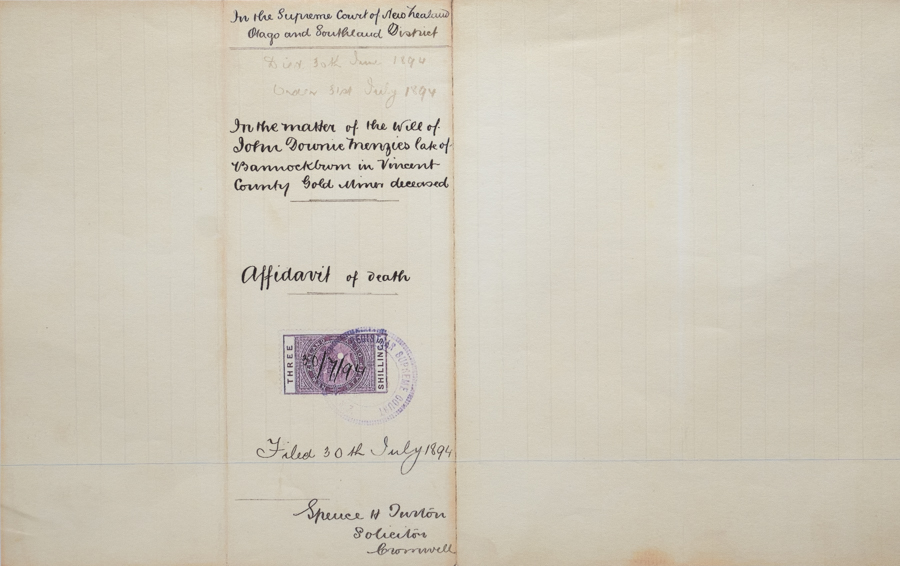 In the Supreme Court of New Zealand
Otago and Southland District
Died 30th June 1894
Order 31st July 1894
In the matter of the Will of
John Downie Menzies late of
Bannockburn in Vincent
County Gold Miner deceased
Affidavit of death
THREE
SHILLINGS
30/7/94
REGISTRAR SUPREME COURT
Filed 30th July 1894
Spence H Turton
Solicitor
Cromwell